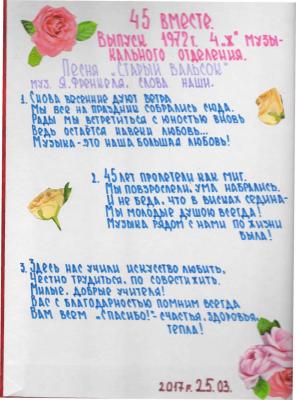 45 ВМЕСТЕ.
ВЫПУСК 1972г. 4-х МУЗЫ-
КАЛЬНОГО ОТДЕЛЕНИЯ.
ПЕСНЯ „СТАРЫЙ ВАЛЬСОК"
МУЗ. Я. ФРЕНКЕЛЯ. СЛОВА НАШИ.
1. СНОВА ВЕСЕННИЕ ДУЮТ ВЕТРА
МЫ ВСЕ НА ПРАЗДНИК СОБРАЛИСЬ СЮДА.
РАДЫ МЫ ВСТРЕТИТЬСЯ С ЮНОСТЬЮ ВНОВЬ
ВЕДЬ ОСТАЁТСЯ НАВЕКИ ЛЮБОВЬ...
МУЗЫКА - ЭТО НАША БОЛЬШАЯ ЛЮБОВЬ!
2. 45 ЛЕТ ПРОЛЕТЕЛИ КАК МИГ.
МЫ ПОВЗРОСЛЕЛИ, УМА НАБРАЛИСЬ.
И НЕ БЕДА, ЧТО В ВИСКАХ СЕДИНА-
МЫ МОЛОДЫЕ ДУШОЮ ВСЕГДА!
МУЗЫКА РЯДОМ С НАМИ ПО ЖИЗНИ
БЫЛА!
3. ЗДЕСЬ НАС УЧИЛИ ИСКУССТВО ЛЮБИТЬ,
ЧЕСТНО ТРУДИТЬСЯ, ПО СОВЕСТИ ЖИТЬ.
МИЛЫЕ, ДОБРЫЕ УЧИТЕЛЯ!
ВАС С БЛАГОДАРНОСТЬЮ ПОМНИМ ВСЕГДА
ВАМ ВСЕМ „СПАСИБО!"- СЧАСТЬЯ, ЗДОРОВЬЯ,
ТЕПЛА!
2017г. 25.03.